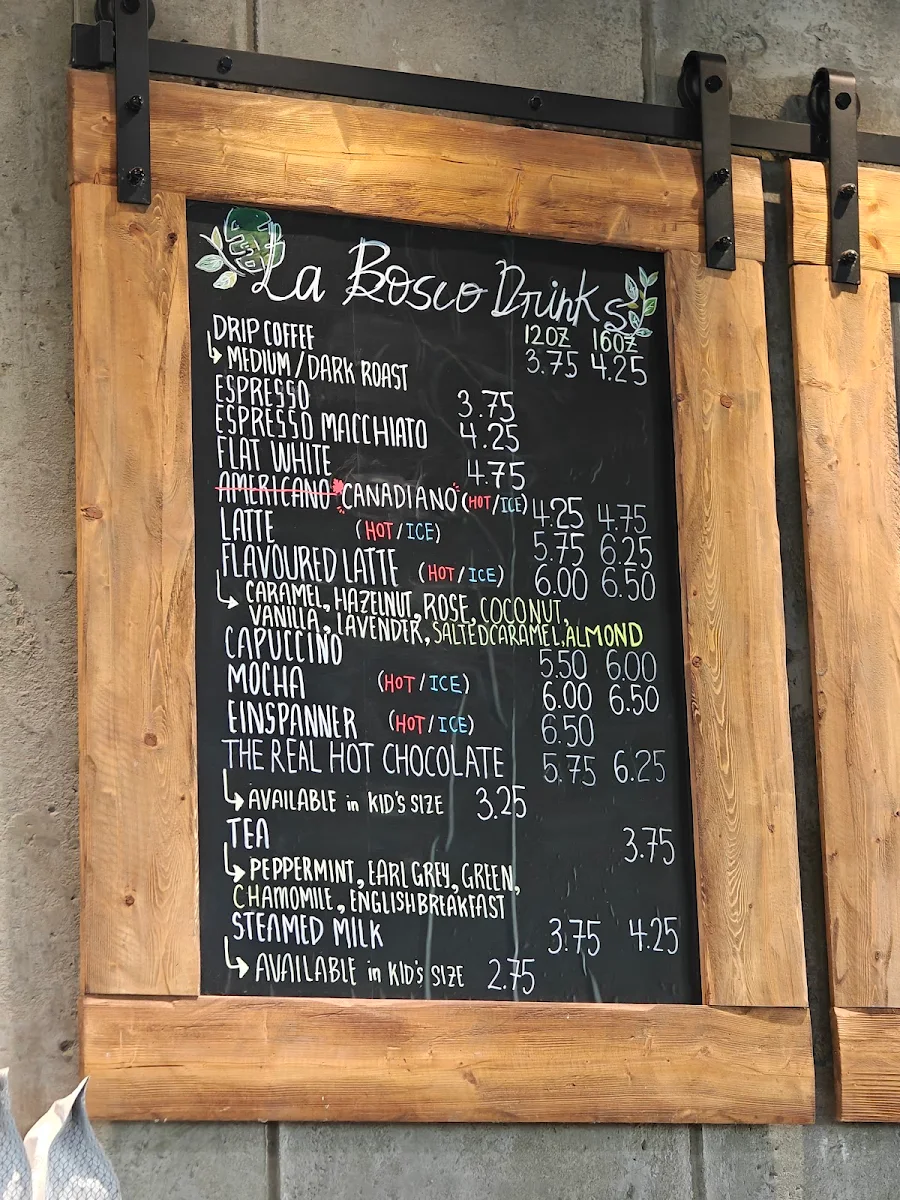 La Bosco Drinks
12OZ 16OZ
DRIP COFFEE 3.75 4.25
MEDIUM / DARK ROAST
ESPRESSO 3.75
ESPRESSO MACCHIATO 4.25
FLAT WHITE 4.75
AMERICANO CANADIANO (HOT/ICE) 4.25 4.75
LATTE (HOT/ICE) 5.75 6.25
FLAVOURED LATTE (HOT/ICE) 6.00 6.50
CARAMEL, HAZELNUT, ROSE, COCONUT,
VANILLA, LAVENDER, SALTED CARAMEL, ALMOND
CAPUCCINO 5.50 6.00
MOCHA (HOT/ICE) 6.00 6.50
EINSPANNER (HOT/ICE) 6.50
THE REAL HOT CHOCOLATE 5.75 6.25
AVAILABLE in KID'S SIZE 3.25
TEA 3.75
PEPPERMINT, EARL GREY, GREEN,
CHAMOMILE, ENGLISH BREAKFAST
STEAMED MILK 3.75 4.25
AVAILABLE in KID'S SIZE 2.75